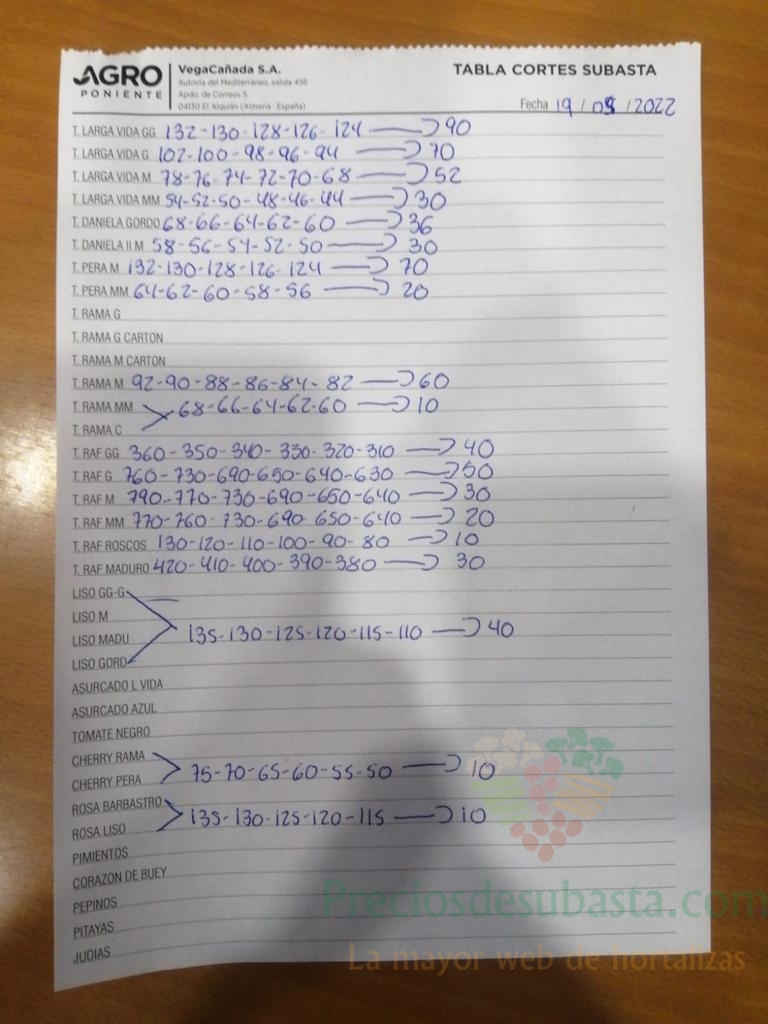 AGRO PONIENTE
VegaCañada S.A.
Autovía del Mediterráneo, salida 456
Apdo. de Correos 5
04130 El Alquián (Almería · España)
TABLA CORTES SUBASTA
Fecha 19/05/2022
T. LARGA VIDA GG 132-130-128-126-124 → 90
T. LARGA VIDA G 102-100-98-96-94 → 70
T. LARGA VIDA M 78-76-74-72-70-68 → 52
T. LARGA VIDA MM 54-52-50-48-46-44 → 30
T. DANIELA GORDO 68-66-64-62-60 → 36
T. DANIELA II M 58-56-54-52-50 → 30
T. PERA M 132-130-128-126-124 → 70
T. PERA MM 64-62-60-58-56 → 20
T. RAMA G
T. RAMA G CARTON
T. RAMA M CARTON
T. RAMA M 92-90-88-86-84-82 → 60
T. RAMA MM 68-66-64-62-60 → 10
T. RAMA C
T. RAF GG 360-350-340-330-320-310 → 40
T. RAF G 760-730-690-650-640-630 → 50
T. RAF M 790-770-730-690-650-640 → 30
T. RAF MM 770-760-730-690-650-640 → 20
T. RAF ROSCOS 130-120-110-100-90-80 → 10
T. RAF MADURO 420-410-400-390-380 → 30
LISO GG-G
LISO M
LISO MADU 135-130-125-120-115-110 → 40
LISO GORD
ASURCADO L VIDA
ASURCADO AZUL
TOMATE NEGRO
CHERRY RAMA
75-70-65-60-55-50 → 10
CHERRY PERA
ROSA BARBASTRO
135-130-125-120-115 → 10
ROSA LISO
PIMIENTOS
CORAZON DE BUEY
PEPINOS
PITAYAS
JUDIAS
Preciosdesubasta.com
La mayor web de hortalizas